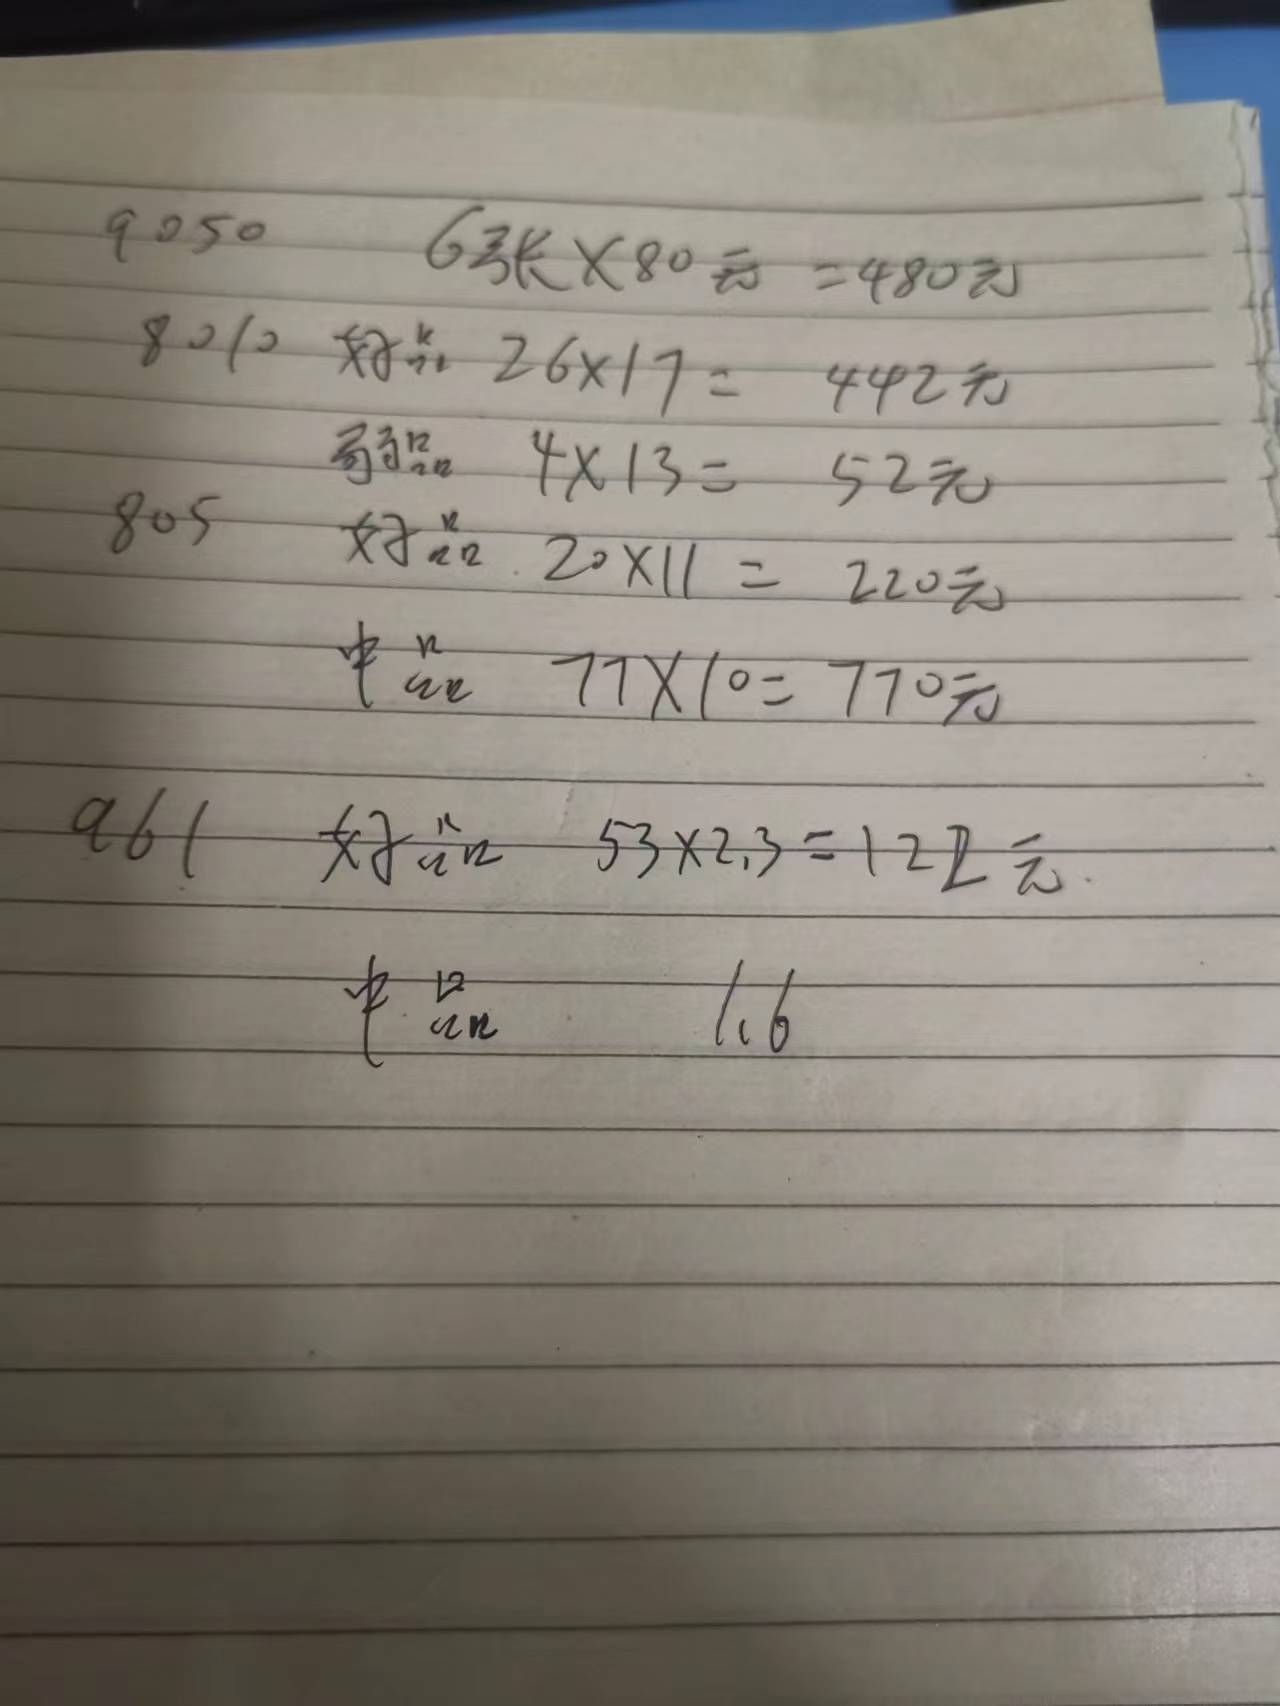 9050 6张×80元=480元
8010 好品 26×17= 442元
弱品 4×13= 52元
805 好品 20×11= 220元
中品 77×10=770元
961 好品 53×2.3=122元
中品 1.6